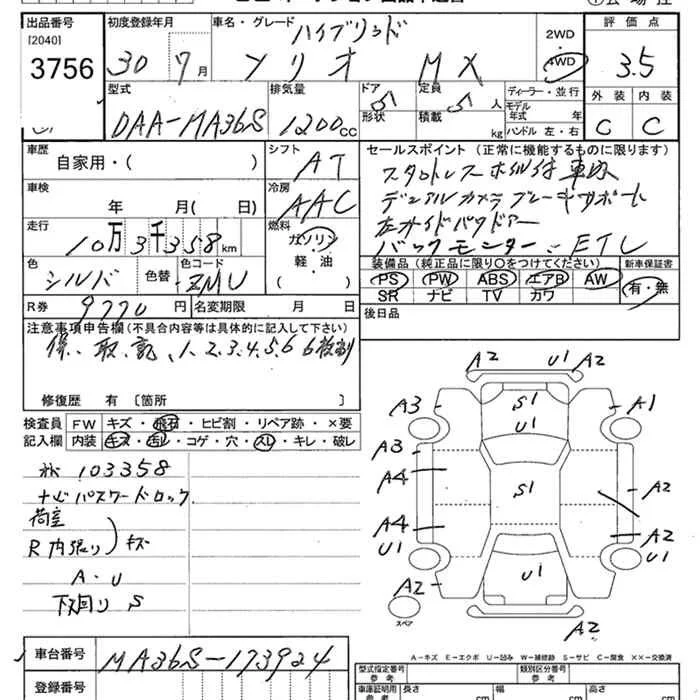 出品番号 初度登録年月 車名・グレード ハイブリッド 2WD 評価点
[2040]
3756 30 7月 ソリオ MX 4WD 3.5
型式 排気量 ドア 定員 ディーラー・並行 外装 内装
DAA-MA36S 1200cc 5 5人 モデル年式 年 C C
形状 積載 kg ハンドル 左・右
車歴 シフト セールスポイント (正常に機能するものに限ります)
自家用・( ) AT
車検 冷房 デュアルカメラブレーキサポート
年 月( 日) AAC
走行 燃料 左サイドパワードアー
10万3千358km ガソリン バックモニター ETC
軽・油
色 色替 色コード 装備品 (純正品に限り○をつけてください) 新車保証書
シルバ ZMU PS PW ABS エアB AW 有・無
SR ナビ TV カワ
R券 9770円 名変期限 月 日 後日品
注意事項申告欄(不具合内容等は具体的に記入して下さい)
保、取、記、1.2.3.4.5.6
修復歴 有 〔箇所 〕
検査員 FW キズ・飛石・ヒビ割・リペア跡・×要
記入欄 内装 キズ・汚レ・コゲ・穴・スレ・キレ・破レ
103358
ナビパスワードロック
荷室
R内張り キズ
A・U
下廻り S
A2 U1 A2
A3 S1 A1
U1
A3
A4 S1 A2
A4 A2
U1 U1
A2 U1
スペア A2
A-キズ E-エクボ U-凹み W-補修跡 S-サビ C-腐食 ××-交換済
車台番号 MA36S-173924
登録番号
型式指定番号 参考 類別区分番号 参考
車庫証明用 参考 長さ cm 幅 cm 高さ cm